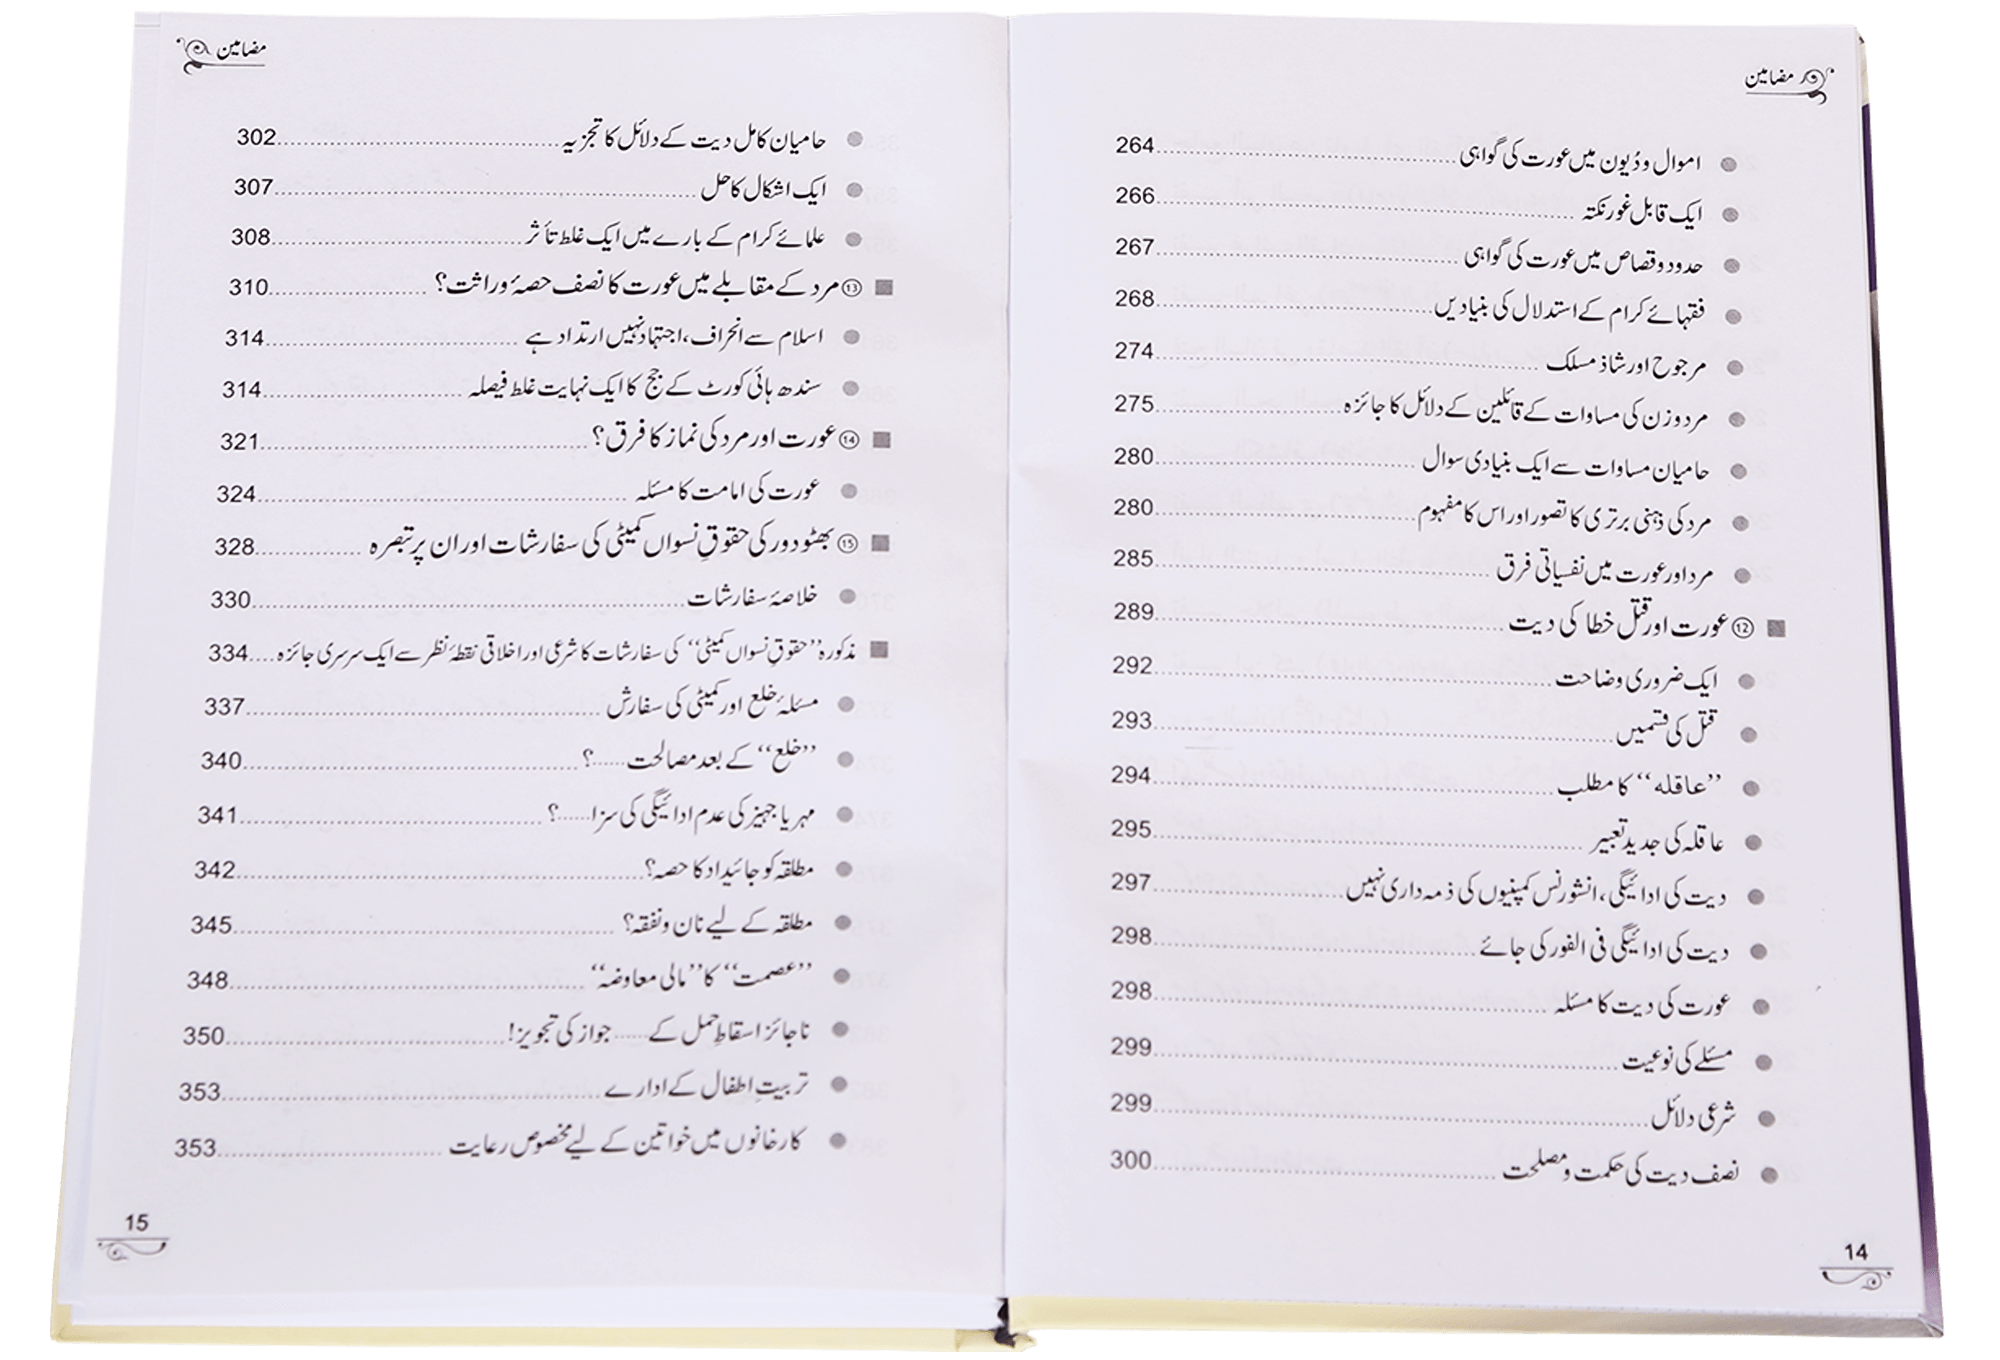 مضامین
اموال و دُیون میں عورت کی گواہی 264
ایک قابل غور نکتہ 266
حدود و قصاص میں عورت کی گواہی 267
فقہائے کرام کے استدلال کی بنیادیں 268
مرجوح اور شاذ مسلک 274
مرد و زن کی مساوات کے قائلین کے دلائل کا جائزہ 275
حامیان مساوات سے ایک بنیادی سوال 280
مرد کی ذہنی برتری کا تصور اور اس کا مفہوم 280
مرد اور عورت میں نفسیاتی فرق 285
⑫ عورت اور قتل خطا کی دیت 289
ایک ضروری وضاحت 292
قتل کی قسمیں 293
’’عاقلہ‘‘ کا مطلب 294
عاقلہ کی جدید تعبیر 295
دیت کی ادائیگی، انشورنس کمپنیوں کی ذمہ داری نہیں 297
دیت کی ادائیگی فی الفور کی جائے 298
عورت کی دیت کا مسئلہ 298
مسئلے کی نوعیت 299
شرعی دلائل 299
نصف دیت کی حکمت و مصلحت 300
14
مضامین
حامیان کامل دیت کے دلائل کا تجزیہ 302
ایک اشکال کا حل 307
علمائے کرام کے بارے میں ایک غلط تأثر 308
⑬ مرد کے مقابلے میں عورت کا نصف حصۂ وراثت؟ 310
اسلام سے انحراف، اجتہاد نہیں ارتداد ہے 314
سندھ ہائی کورٹ کے جج کا ایک نہایت غلط فیصلہ 314
⑭ عورت اور مرد کی نماز کا فرق؟ 321
عورت کی امامت کا مسئلہ 324
⑮ بھٹو دور کی حقوقِ نسواں کمیٹی کی سفارشات اور ان پر تبصرہ 328
خلاصۂ سفارشات 330
مذکورہ ’’حقوقِ نسواں کمیٹی‘‘ کی سفارشات کا شرعی اور اخلاقی نقطۂ نظر سے ایک سرسری جائزہ 334
مسئلۂ خلع اور کمیٹی کی سفارش 337
’’خلع‘‘ کے بعد مصالحت......؟ 340
مہر یا جہیز کی عدم ادائیگی کی سزا......؟ 341
مطلقہ کو جائیداد کا حصہ؟ 342
مطلقہ کے لیے نان و نفقہ؟ 345
’’عصمت‘‘ کا ’’مالی معاوضہ‘‘ 348
ناجائز اسقاطِ حمل کے...... جواز کی تجویز! 350
تربیتِ اطفال کے ادارے 353
کارخانوں میں خواتین کے لیے مخصوص رعایت 353
15